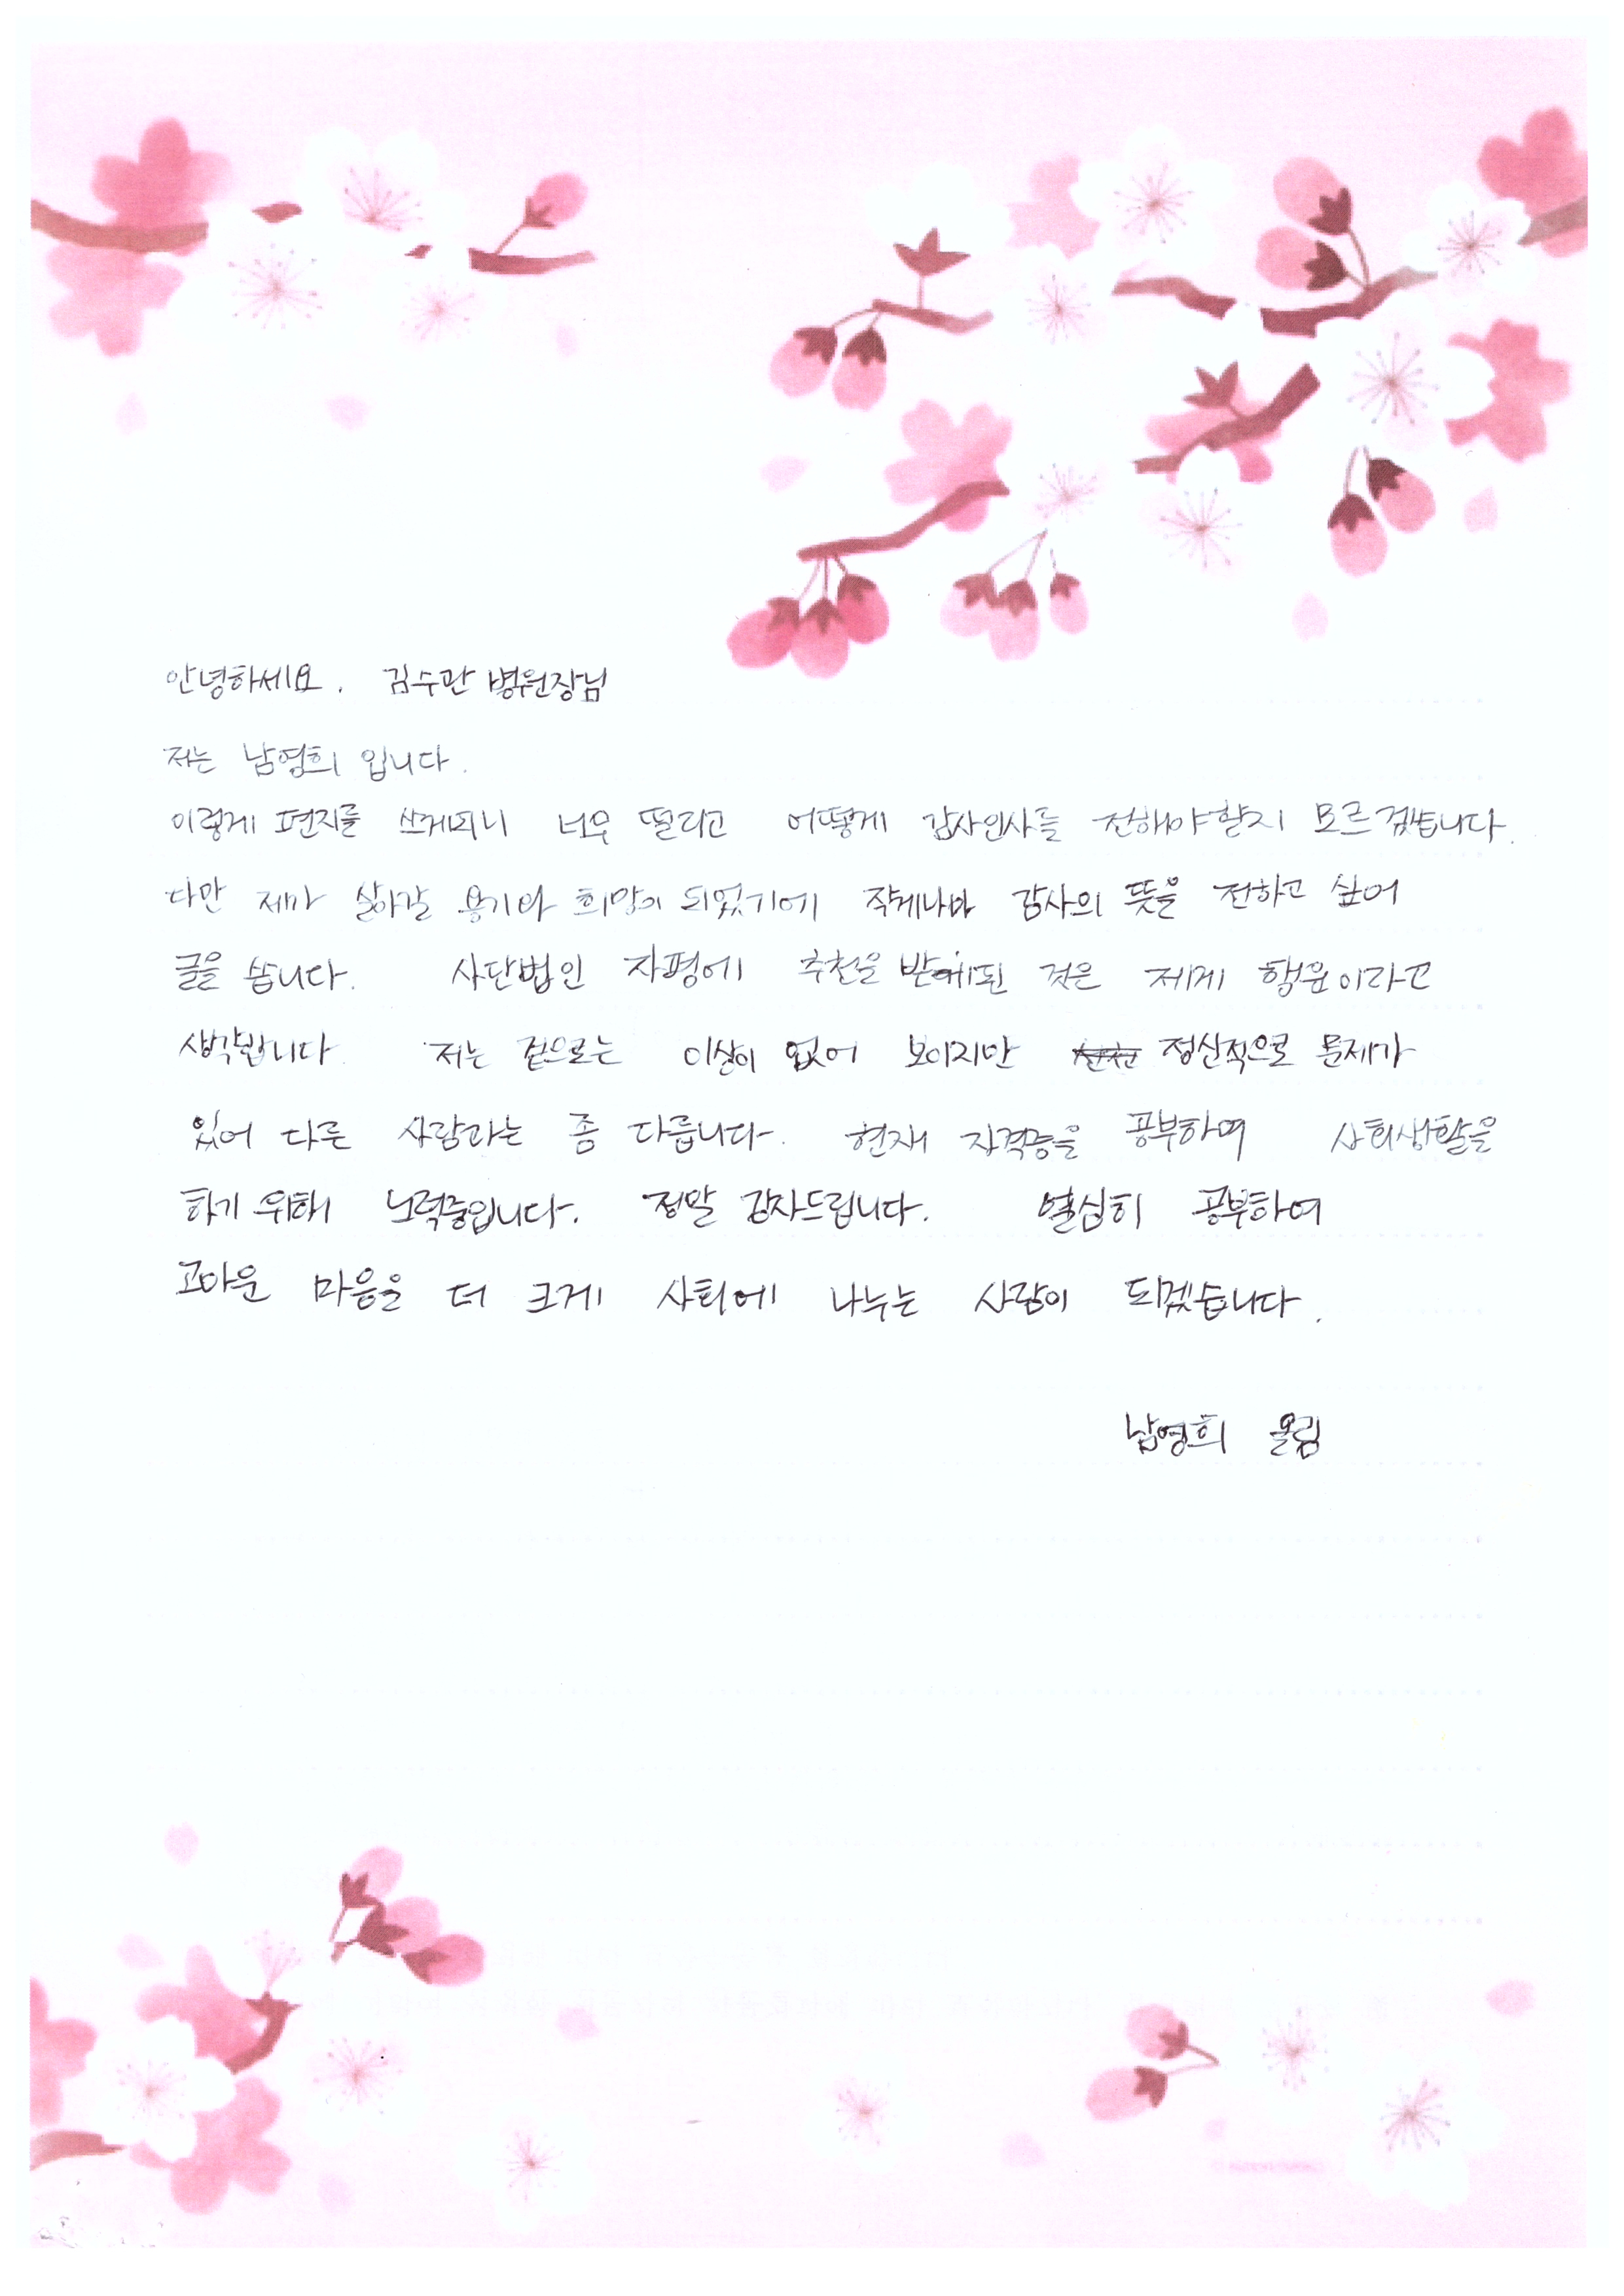 안녕하세요. 김수관 병원장님
저는 남영희 입니다.
이렇게 편지를 쓰게되니 너무 떨리고 어떻게 감사인사를 전해야할지 모르겠습니다.
다만 제가 살아갈 용기와 희망이 되었기에 작게나마 감사의 뜻을 전하고 싶어
글을 씁니다. 사단법인 자평에 추천을 받게된 것은 제게 행운이라고
생각합니다. 저는 겉으로는 이상이 없어 보이지만 정신적으로 문제가
있어 다른 사람과는 좀 다릅니다. 현재 자격증을 공부하며 사회생활을
하기 위해 노력중입니다. 정말 감사드립니다. 열심히 공부하여
고마운 마음을 더 크게 사회에 나누는 사람이 되겠습니다.
남영희 올림